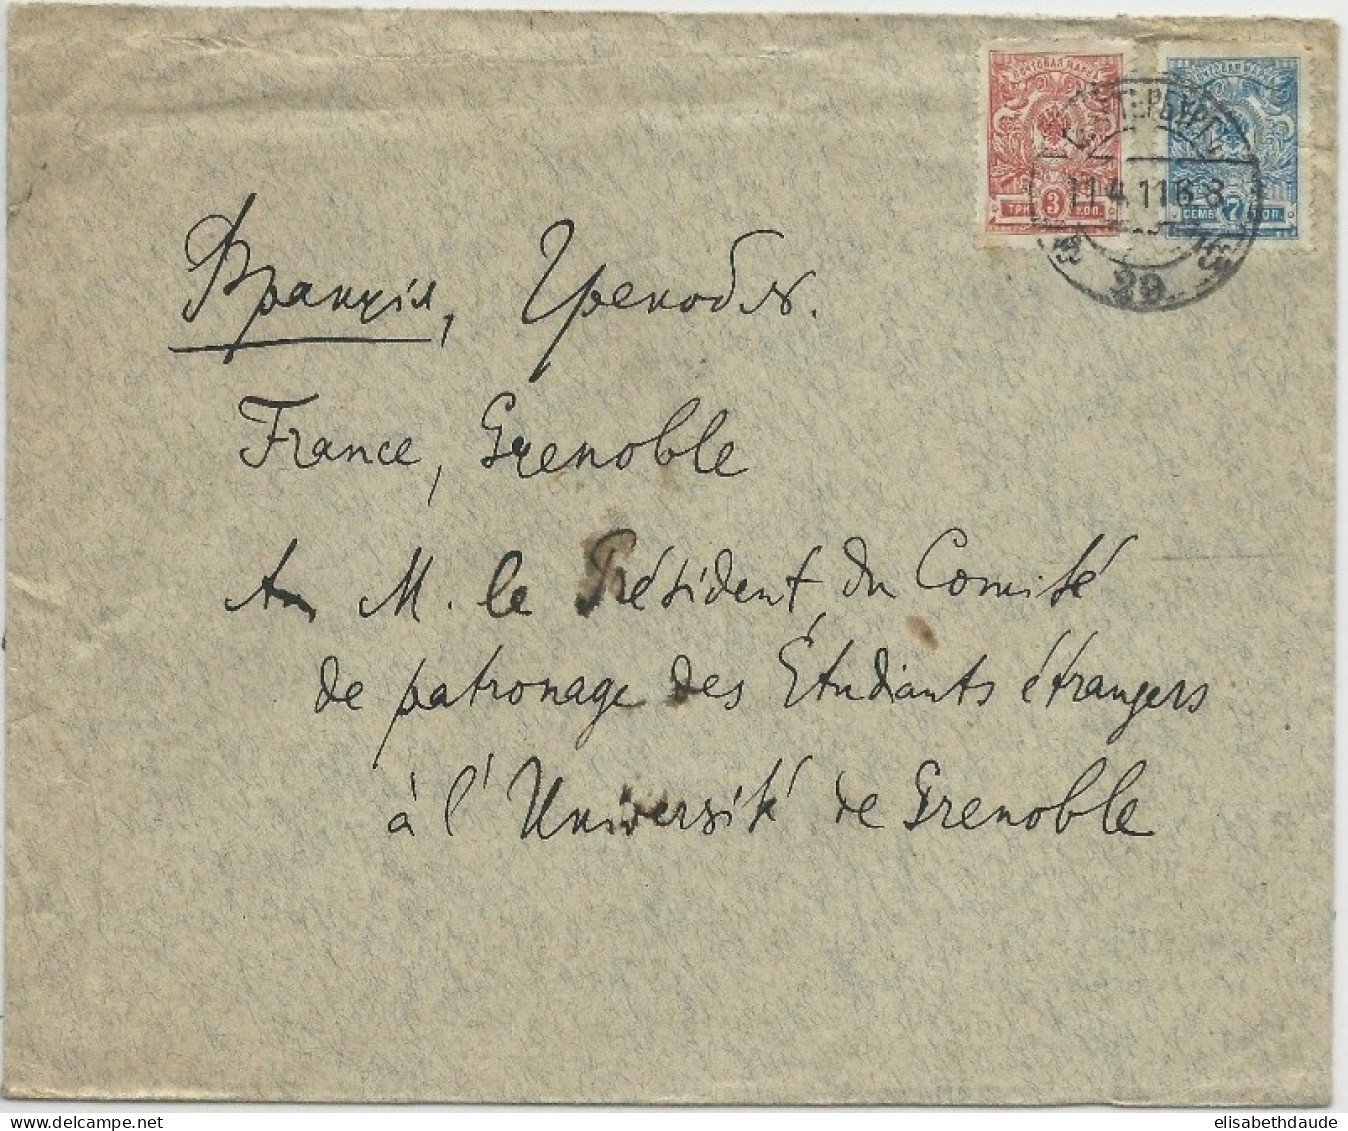 ПОЧТОВАЯ МАРКА
3
ТРИ КОП.
ПОЧТОВАЯ МАРКА
7
СЕМЬ КОП.
11 4 11 6 8
29
Франція, Гренобль.
France, Grenoble
Au M. le Président du Comité
de patronage des Étudiants étrangers
à l'Université de Grenoble
elisabethdaude